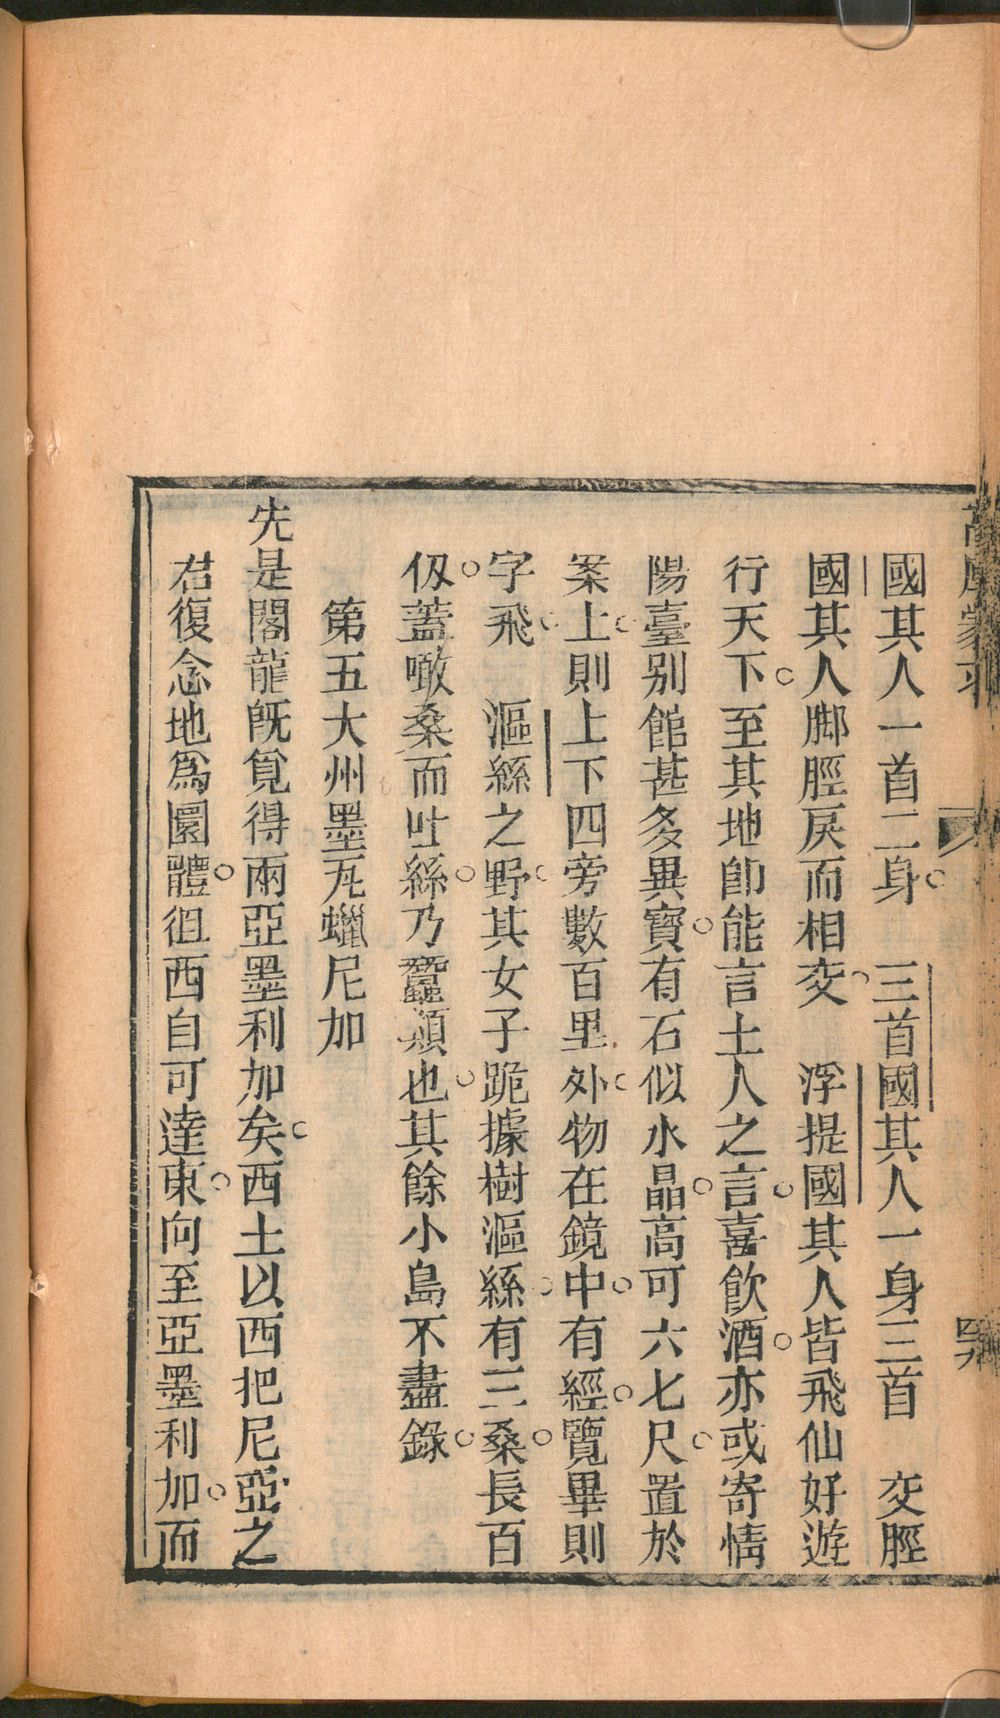 國其人一首二身。　三首國其人一身三首　交脛
國其人脚脛戾而相交。　浮提國其人皆飛仙好遊
行天下。至其地卽能言土人之言。喜飮酒。亦或寄情
陽臺別館甚多異寶。有石似水晶。高可六七尺。置於
案上。則上下四旁數百里外。物在鏡中。有經。覽畢則
字飛。　漚絲之野。其女子跪據樹漚絲。有三桑。長百
仭。蓋噉桑而吐絲。乃蠶類也。其餘小島不盡錄。
第五大州墨瓦蠟尼加
先是閣龍旣覓得兩亞墨利加矣。西土以西把尼亞之
君復念地爲圜體。徂西自可達東。向至亞墨利加。而